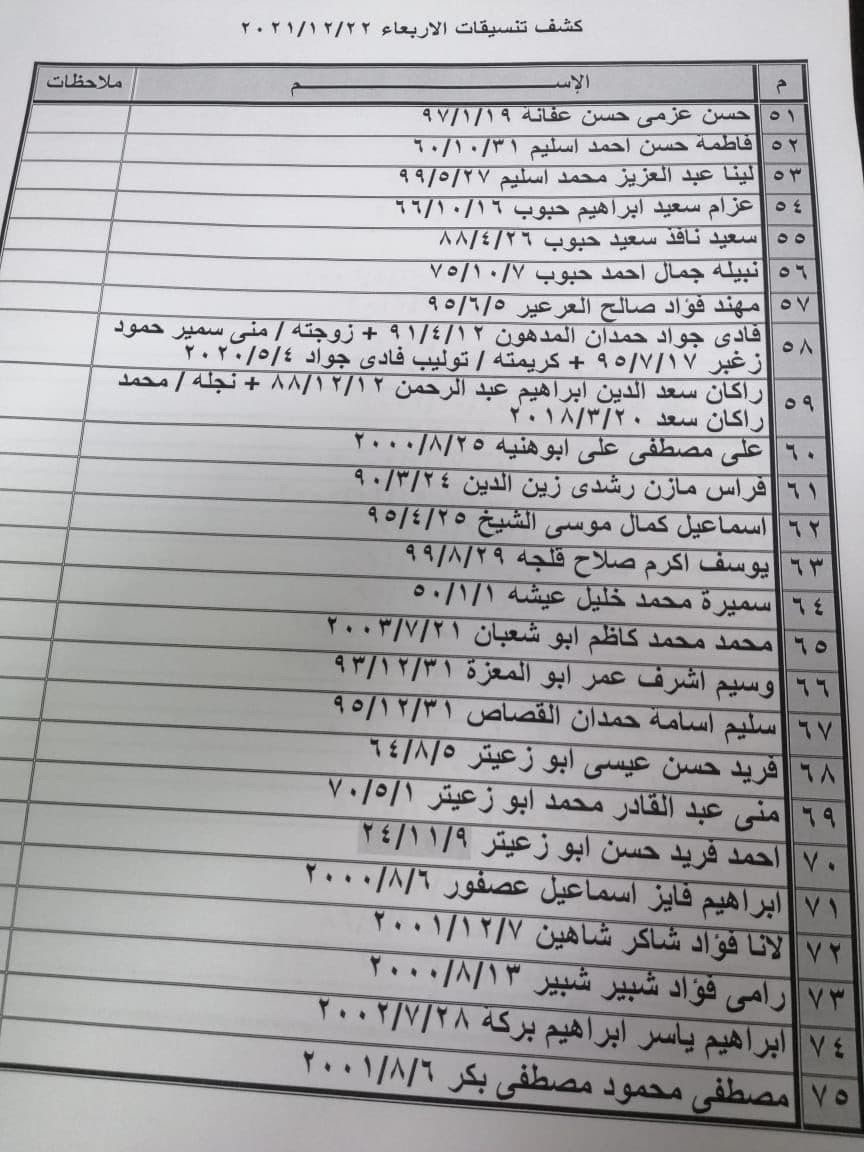 كشف تنسيقات الاربعاء ٢٠٢١/١٢/٢٢
م الإســـــــــم ملاحظات
٥١ حسن عزمى حسن عفانة ٩٧/١/١٩
٥٢ فاطمة حسن احمد اسليم ٦٠/١٠/٣١
٥٣ لينا عبد العزيز محمد اسليم ٩٩/٥/٢٧
٥٤ عزام سعيد ابراهيم حبوب ٦٦/١٠/١٦
٥٥ سعيد نافذ سعيد حبوب ٨٨/٤/٢٦
٥٦ نبيله جمال احمد حبوب ٧٥/١٠/٧
٥٧ مهند فؤاد صالح العرعير ٩٥/٦/٥
٥٨ فادى جواد حمدان المدهون ٩١/٤/١٢ + زوجته / منى سمير حمود
زغبر ٩٥/٧/١٧ + كريمته / توليب فادى جواد ٢٠٢٠/٥/٤
٥٩ راكان سعد الدين ابراهيم عبد الرحمن ٨٨/١٢/١٢ + نجله / محمد
راكان سعد ٢٠١٨/٣/٢٠
٦٠ على مصطفى على ابوهنيه ٢٠٠٠/٨/٢٥
٦١ فراس مازن رشدى زين الدين ٩٠/٣/٢٤
٦٢ اسماعيل كمال موسى الشيخ ٩٥/٤/٢٥
٦٣ يوسف اكرم صلاح قلجه ٩٩/٨/٢٩
٦٤ سميرة محمد خليل عيشه ٥٠/١/١
٦٥ محمد محمد كاظم ابو شعبان ٢٠٠٣/٧/٢١
٦٦ وسيم اشرف عمر ابو المعزة ٩٣/١٢/٣١
٦٧ سليم اسامة حمدان القصاص ٩٥/١٢/٣١
٦٨ فريد حسن عيسى ابو زعيتر ٦٤/٨/٥
٦٩ منى عبد القادر محمد ابو زعيتر ٧٠/٥/١
٧٠ احمد فريد حسن ابو زعيتر ٢٤/١١/٩
٧١ ابراهيم فايز اسماعيل عصفور ٢٠٠٠/٨/٦
٧٢ لانا فؤاد شاكر شاهين ٢٠٠١/١٢/٧
٧٣ رامى فؤاد شبير شبير ٢٠٠٠/٨/١٣
٧٤ ابراهيم ياسر ابراهيم بركة ٢٠٠٢/٧/٢٨
٧٥ مصطفى محمود مصطفى بكر ٢٠٠١/٨/٦